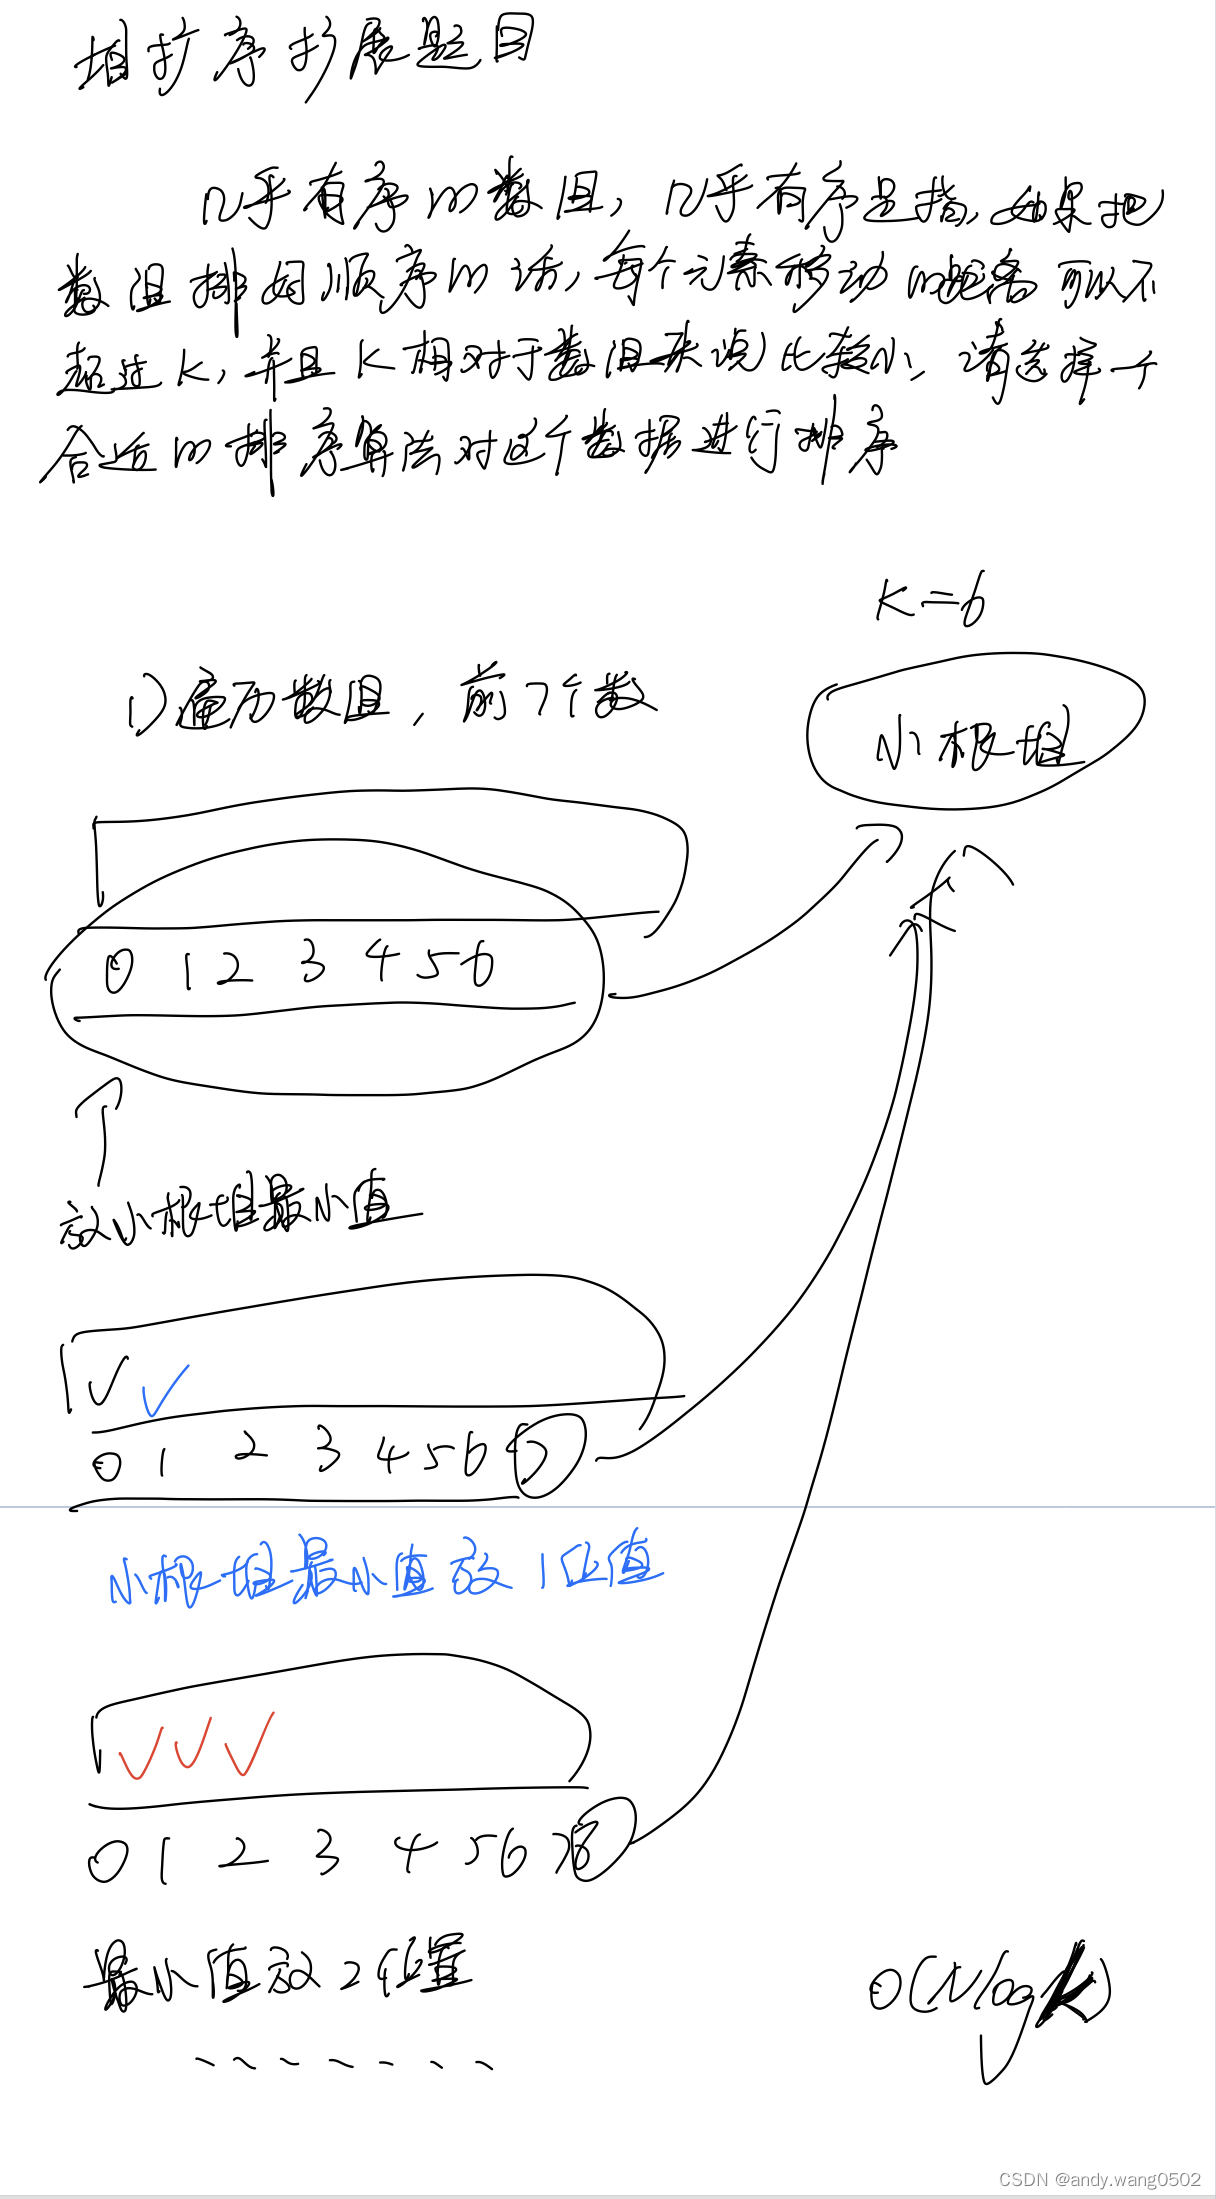 堆扩序扩展题目
几乎有序的数组，几乎有序是指，如果把
数组排好顺序的话，每个元素移动的距离可以不
超过K，并且K相对于数组来说比较小，请选择一个
合适的排序算法对这个数据进行排序
K=6
1)遍历数组，前7个数
小根堆
0 1 2 3 4 5 6
放小根堆最小值
0 1 2 3 4 5 6 7
小根堆最小值放1位值
0 1 2 3 4 5 6 7 8
最小值放2位置
O(NlogK)
CSDN @andy.wang0502